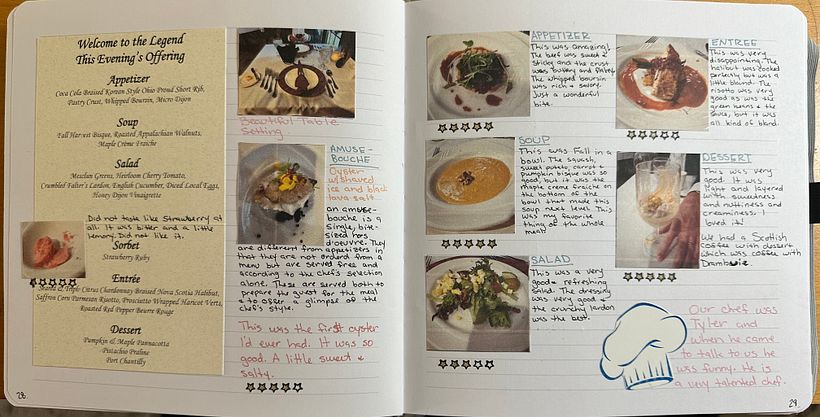 Welcome to the Legend
This Evening's Offering
Appetizer
Coca Cola Braised Korean Style Ohio Proud Short Rib,
Pastry Crust, Whipped Boursin, Micro Dijon
Soup
Fall Harvest Bisque, Roasted Appalachian Walnuts,
Maple Crème Fraiche
Salad
Mesclun Greens, Heirloom Cherry Tomato,
Crumbled Falter's Lardon, English Cucumber, Diced Local Eggs,
Honey Dijon Vinaigrette
Did not taste like Strawberry at
all. It was bitter and a little
lemony. Did not like it.
Sorbet
Strawberry Ruby
Entrée
Triple Citrus Chardonnay Braised Nova Scotia Halibut,
Saffron Corn Parmesan Risotto, Prosciutto Wrapped Haricot Verts,
Roasted Red Pepper Beurre Rouge
Dessert
Pumpkin & Maple Pannacotta
Pistachio Praline
Port Chantilly
28.
Beautiful Table
Setting.
AMUSE-
BOUCHE
Oyster
w/shaved
ice and black
lava salt.
an amuse-
bouche is a
single, bite-
sized hors
d'oeuvre. They
are different from appetizers in
that they are not ordered from a
menu but are served free and
according to the chef's selection
alone. These are served both to
prepare the guest for the meal
& to offer a glimpse of the
chef's style.
This was the first oyster
I'd ever had. It was so
good. A little sweet &
salty.
APPETIZER
This was amazing!
The beef was sweet &
sticky and the crust
was buttery and
The whipped boursin
was rich & savory.
Just a wonderful
bite.
SOUP
This was Fall in a
bowl. The squash,
sweet potato, carrot &
pumpkin bisque was so
good, but it was the
maple creme fraiche on
the bottom of the
bowl that made this
soup next level. This
was my favorite
thing of the whole
meal!
SALAD
This was a very
good & refreshing
salad. The dressing
was very good &
the crunchy lardon
was the best.
ENTREE
This was very
disappointing. The
halibut was cooked
perfectly but was a
little bland. The
risotto was very
good as was the
green beans & the
sauce, but it was
all kind of bland.
DESSERT
This was very
good. It was
light and layered
with sweetness
and nuttiness and
creaminess. I
loved it!
We had a Scottish
coffee with dessert
which was coffee with
Drambuie.
Our chef was
Tyler and
when he came
to talk to us he
was funny. He is
a very talented chef.
29.